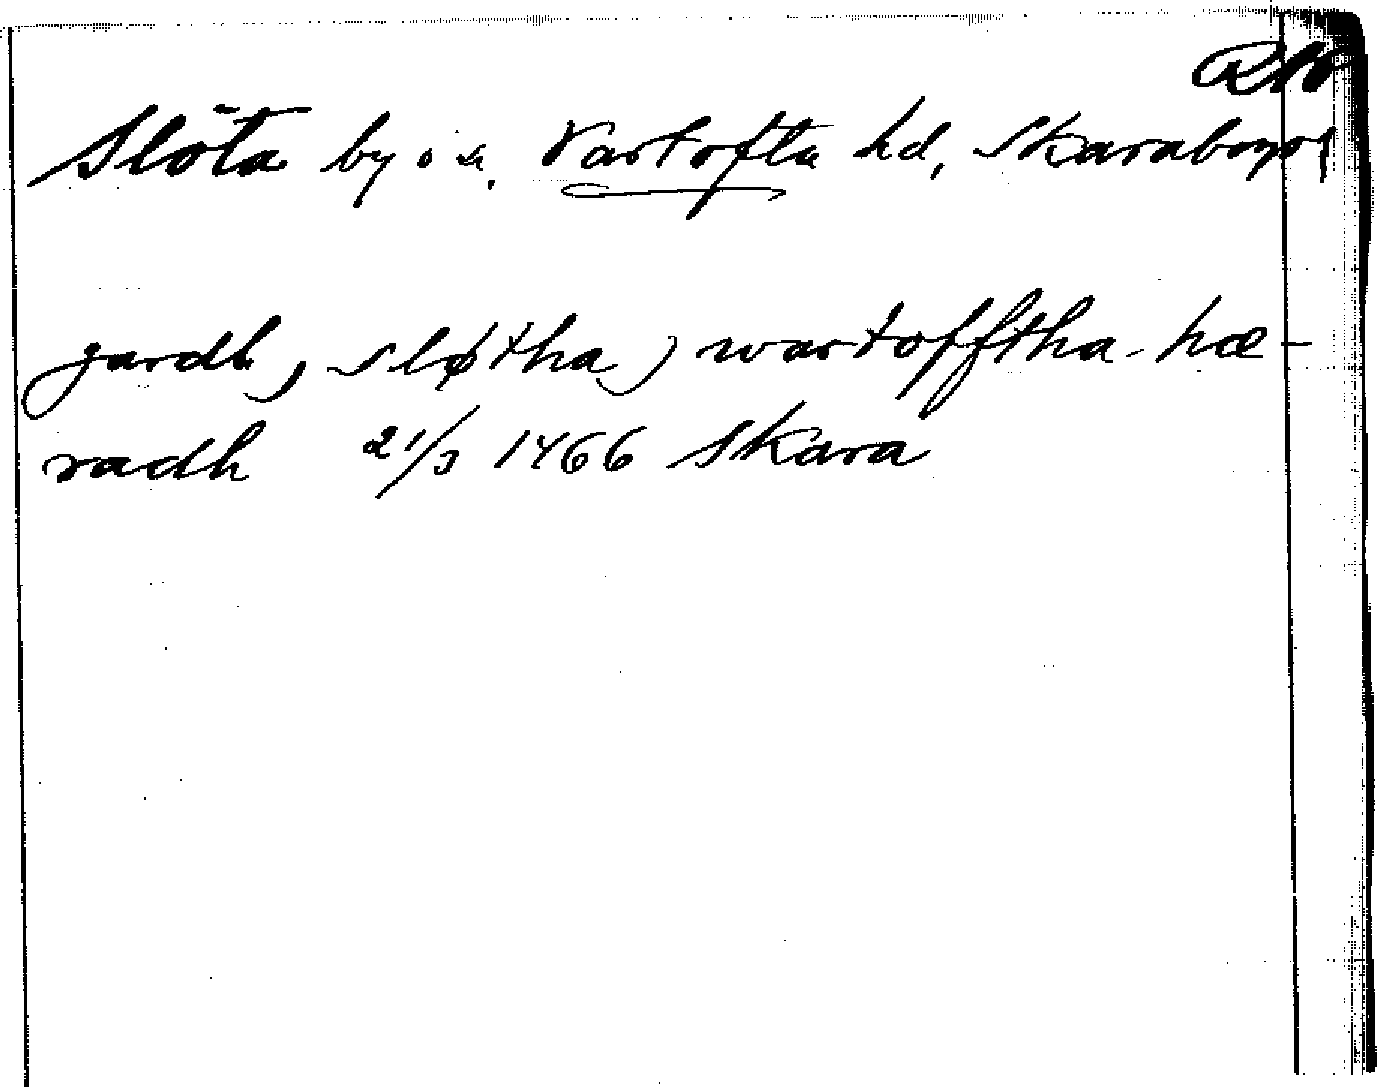 Slöta by o sn, Vartofta hd, Skaraborgs l
gardh j sløtha j wartofftha hæ-
radh 21/3 1466 Skara